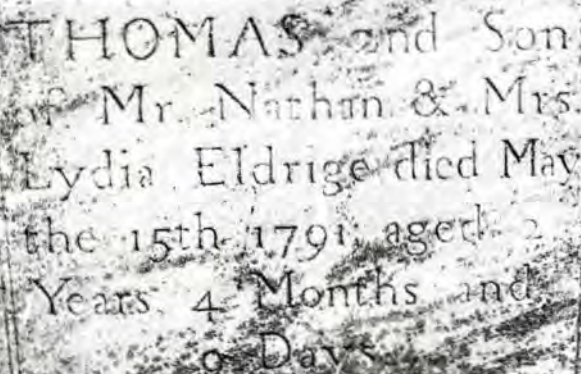 THOMAS and Son
of Mr. Nathan & Mrs.
Lydia Eldrige died May
the 15th 1791, aged 2
Years 4 Months and
9 Days.